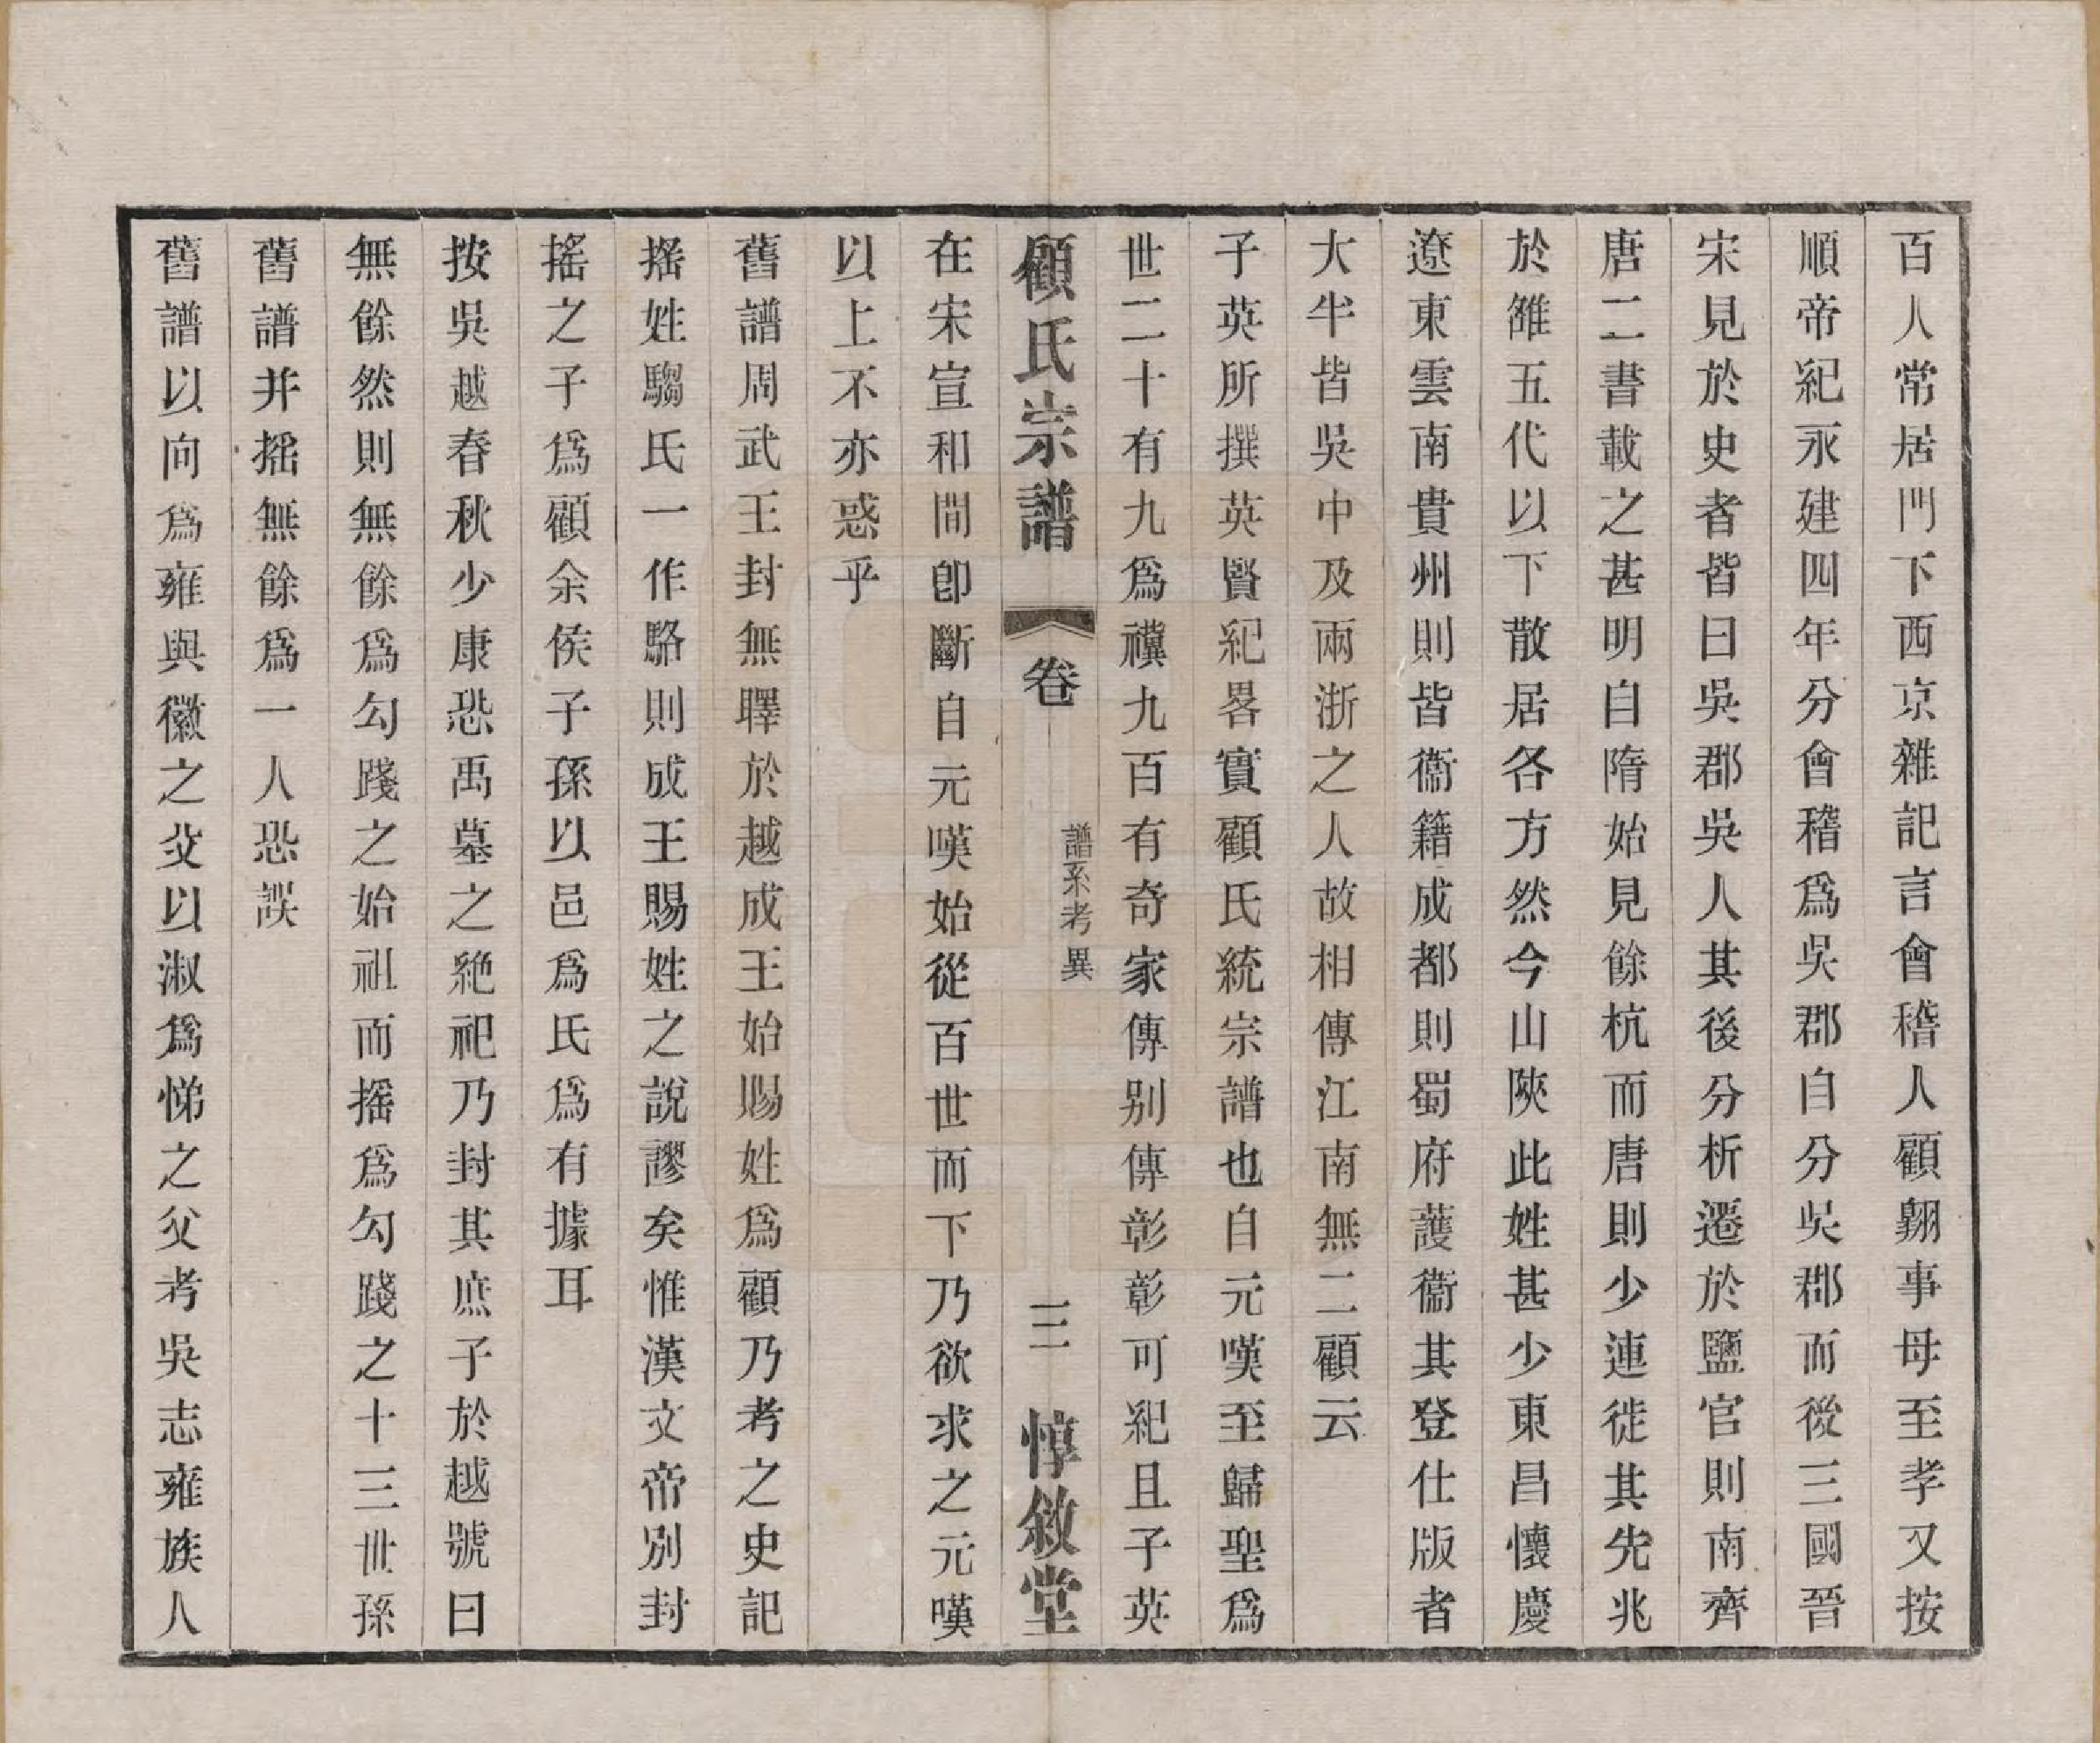 百人常居門下西京雜記言會稽人顧翺事母至孝又按
順帝紀永建四年分會稽爲吳郡自分吳郡而後三國晉
宋見於史者皆曰吳郡吳人其後分析遷於鹽官則南齊
唐二書載之甚明自隋始見餘杭而唐則少連徙其先兆
於雒五代以下散居各方然今山陝此姓甚少東昌懷慶
遼東雲南貴州則皆衞籍成都則蜀府護衞其登仕版者
大半皆吳中及兩浙之人故相傳江南無二顧云
子英所撰英賢紀畧實顧氏統宗譜也自元嘆至歸聖爲
世二十有九爲禩九百有奇家傳别傳彰彰可紀且子英
顧氏宗譜 卷 譜系考異 三 惇敘堂
在宋宣和間卽斷自元嘆始從百世而下乃欲求之元嘆
以上不亦惑乎
舊譜周武王封無睪於越成王始賜姓爲顧乃考之史記
搖姓騶氏一作駱則成王賜姓之說謬矣惟漢文帝別封
搖之子爲顧余侯子孫以邑爲氏爲有據耳
按吳越春秋少康恐禹墓之絕祀乃封其庶子於越號曰
無餘然則無餘爲勾踐之始祖而搖爲勾踐之十三世孫
舊譜并搖無餘爲一人恐誤
舊譜以向爲雍與徽之父以淑爲悌之父考吳志雍族人